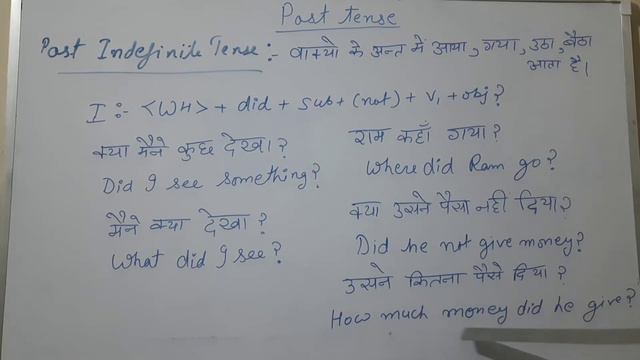 Past tense
Past Indefinite Tense:- वाक्यो के अन्त में आया, गया, उठा, बैठा
आता है।
I :- <WH> + did + sub + (not) + V₁ + obj?
क्या मैने कुछ देखा?
Did I see something?
मैने क्या देखा?
What did I see?
राम कहाँ गया?
Where did Ram go?
क्या उसने पैसा नही दिया?
Did he not give money?
उसने कितना पैसे दिया?
How much money did he give?